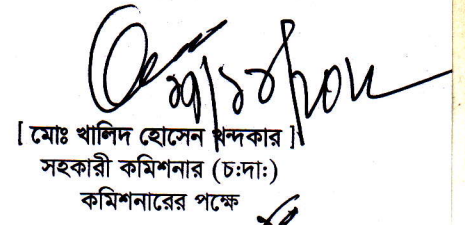 [ মোঃ খালিদ হোসেন খন্দকার ]
সহকারী কমিশনার (চ:দা:)
কমিশনারের পক্ষে